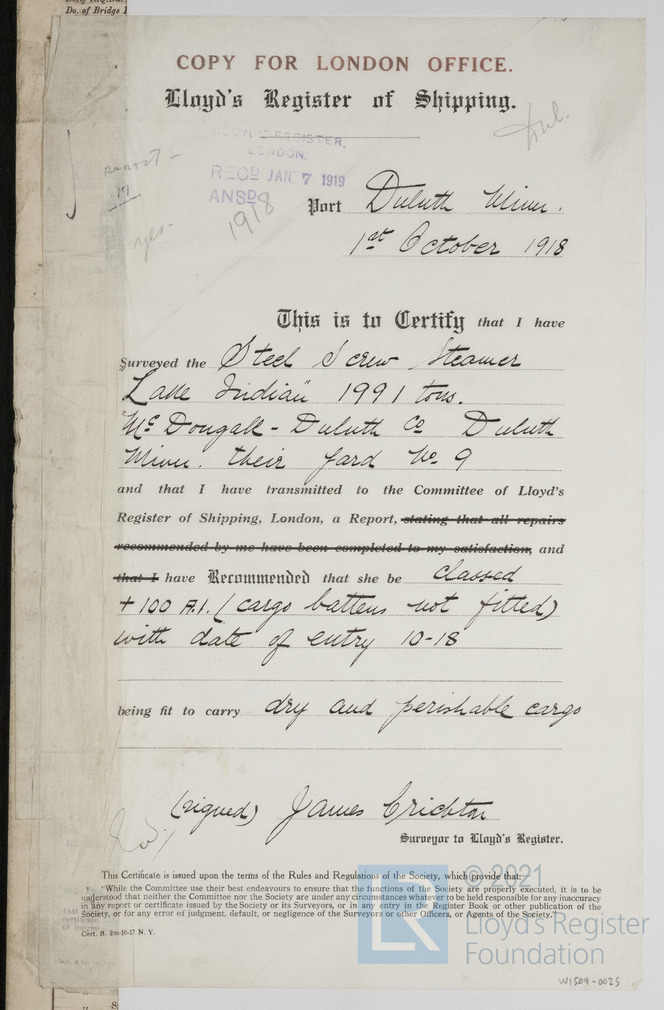 Do. of Bridge
COPY FOR LONDON OFFICE.
Lloyd's Register of Shipping.
REGISTER,
LONDON.
REC'D JAN. 7 1919
ANS'D
1918
report -
19
yes.
Port Duluth Minn.
1st October 1918
This is to Certify that I have
Surveyed the Steel Screw Steamer
"Lake Indian" 1991 tons.
McDougall-Duluth Co Duluth
Minn. their Yard No. 9
and that I have transmitted to the Committee of Lloyd's
Register of Shipping, London, a Report, stating that all repairs
recommended by me have been completed to my satisfaction, and
that I have Recommended that she be classed
+100 A.1. (cargo battens not fitted)
with date of entry 10-18
being fit to carry dry and perishable cargo
(signed) James Crichton
Surveyor to Lloyd's Register.
This Certificate is issued upon the terms of the Rules and Regulations of the Society, which provide that:
"While the Committee use their best endeavours to ensure that the functions of the Society are properly executed, it is to be
understood that neither the Committee nor the Society are under any circumstances whatever to be held responsible for any inaccuracy
in any report or certificate issued by the Society or its Surveyors, or in any entry in the Register Book or other publication of the
Society, or for any error of judgment, default, or negligence of the Surveyors or other Officers, or Agents of the Society."
Cert. B. 2m-10-17 N. Y.
© 2021
Lloyd's Register
Foundation
LR
W1509-0025